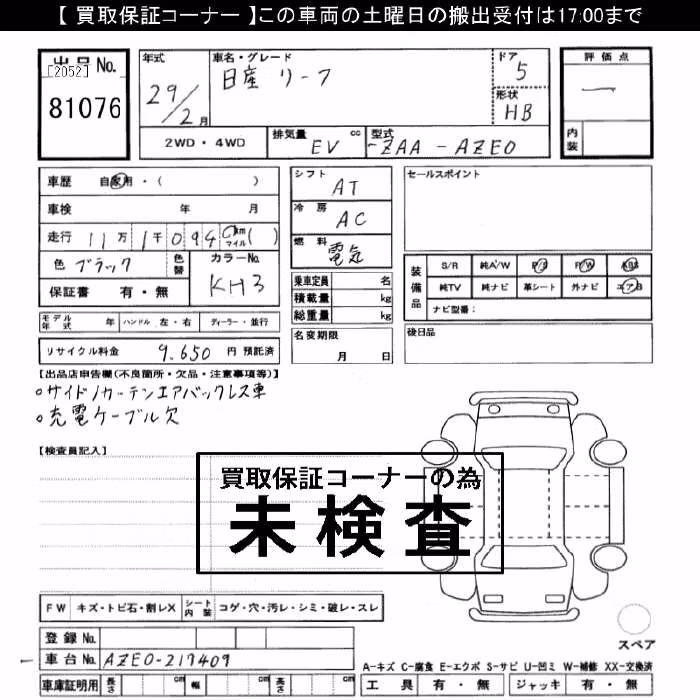 【 買取保証コーナー 】この車両の土曜日の搬出受付は17:00まで
出品 No.
[2052]
81076
年式
29/2月
車名・グレード
日産 リーフ
ドア
5
形状
HB
評価点
一
内装
2WD・4WD
排気量 cc
EV
型式
ZAA-AZE0
車歴 自家用・( )
車検 年 月
走行 11万1千094 km マイル( )
色 ブラック
色替
カラーNo.
KH3
保証書 有・無
シフト
AT
冷房
AC
燃料
電気
乗車定員 名
積載量 kg
総重量 kg
セールスポイント
装備品
S/R 純A/W P/S P/W ABS
純TV 純ナビ 革シート 外ナビ エアB
ナビ型番:
モデル年式 年 ハンドル 左・右 ディーラー・並行
名変期限
月 日
後日品
リサイクル料金 9.650 円 預託済
【出品店申告欄(不良箇所・欠品・注意事項等)】
○サイド/カーテンエアバックレス車
○充電ケーブル欠
【検査員記入】
買取保証コーナーの為
未検査
FW キズ・トビ石・割レX シート内装 コゲ・穴・汚レ・シミ・破レ・スレ
スペア
登録 No.
車台 No. AZE0-217409
A-キズ C-腐食 E-エクボ S-サビ U-凹ミ W-補修 XX-交換済
車庫証明用 長さ cm 幅 cm 高さ cm
工具 有・無 ジャッキ 有・無